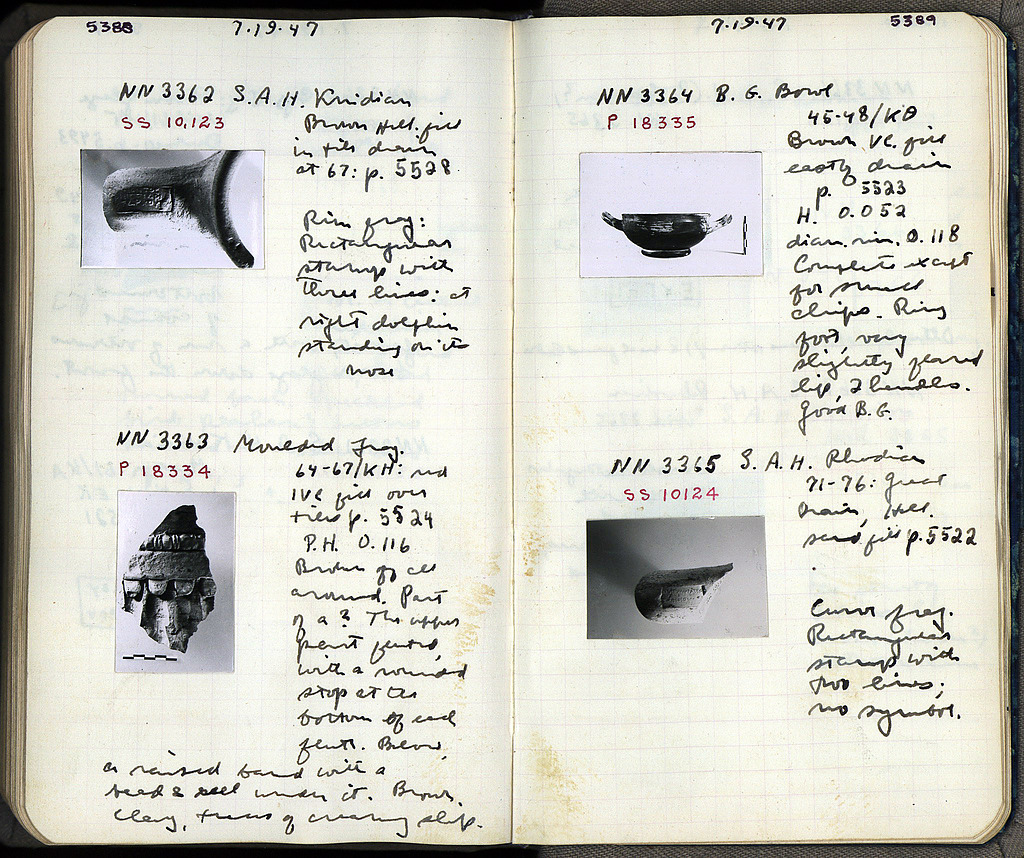 5388
7.19.47
NN 3362 S.A.H. Knidian
SS 10,123
Brown Hell. fill
in tile drain
at 67: p. 5528
Rim frag:
Rectangular
stamp with
three lines: at
right dolphin
standing on its
nose
NN 3363 Moulded frag.
P 18334
64-67/KH: red
IVc fill over
tiles p. 5524
P.H. 0.116
Broken off all
around. Part
of a ? The upper
part fluted,
with a rounded
stop at the
bottom of each
flute. Below,
a raised band with a
bead & reel under it. Brown
clay, traces of creamy slip.
7.19.47
5389
NN 3364 B.G. Bowl
P 18335
45-48/KΘ
Brown Vc. fill
easterly drain
p. 5523
H. 0.052
diam. rim. 0.118
Complete except
for small
chips. Ring
foot, very
slightly flared
lip, 2 handles.
Good B.G.
NN 3365 S.A.H. Rhodian
SS 10124
71-76: Great
Drain, Hell.
sand fill p. 5522
Curve frag.
Rectangular
stamp with
two lines;
no symbol.